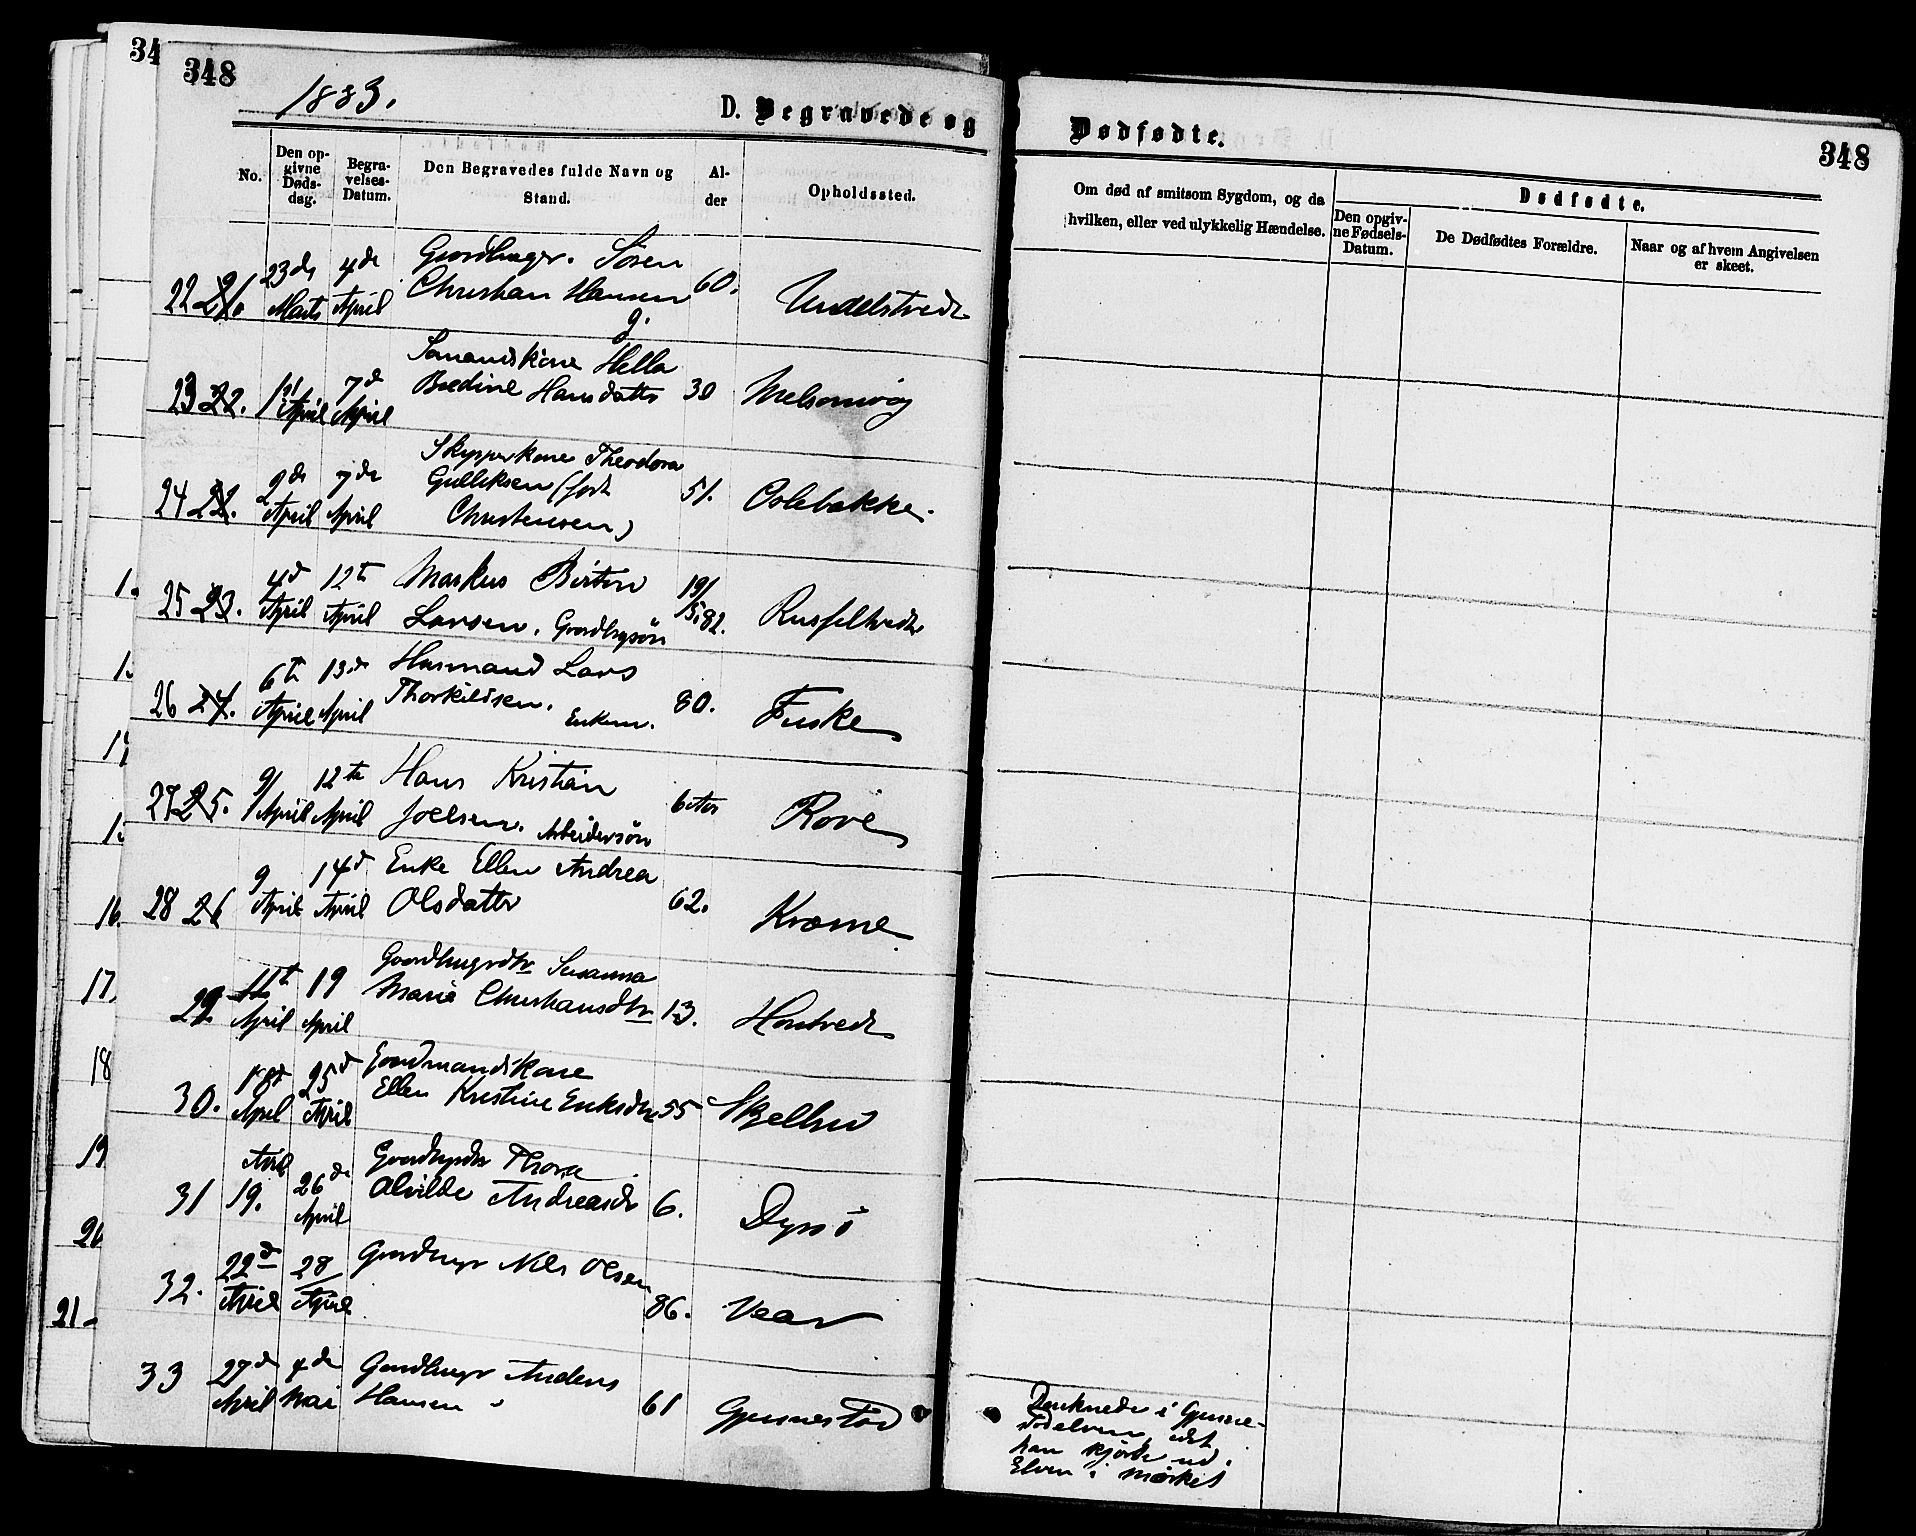 34
348
1883.
D. Begravede og
Dødfødte.
348
No.
Den opgivne Døds-dag.
Begra-velses-Datum.
Den Begravedes fulde Navn og Stand.
Al-der
Opholdssted.
Om død af smitsom Sygdom, og da hvilken, eller ved ulykkelig Hændelse.
Dødfødte.
Den opgiv-ne Fødsels-Datum.
De Dødfødtes Forældre.
Naar og af hvem Angivelsen er skeet.
22 21. 23de Marts 4de April
Søren
Christian Hansen 60. Undelstvedt
g.
23 22. 1st April 7d April
Sømandskone Hella
Bredine Hansdatter 30 Melsomvig
24 22. 2de April 7de April
Skipperkone Theodora
Gulliksen (født
Christensen) 51. Oslebakke.
25 23. 4d April 12te April
Markus Birton
Larsen. Gaardbrgsøn 19/15.82.
26 24. 6te April 13de April
Husmand Lars
Thorkildsen. Enkem. 80. Fuske
27 25. 9/ April 12te April
Hans Kristian
Joelsen. Arbeidersøn Rove
28 26 9 April 14d April
Enke Ellen Andrea
Olsdatter 62.
29. 11t April 19 April
Susanna
Marie Christiansdtr 13. Hontvedt
30. 18d April 25d April
Gaardmandskone
Ellen Kristine Eriksdtr 55
31 April 19. 26de April
Thora
Alvilde Andreasdr 6.
32. 22d April 28/ April
Gaardbrugr Nils Olsen
86. Vear
33 27d April 4de Mai
Gaardbruger Anders
Hansen 61 Gjennestad
Druknede i Gjenne-
stadelven, idet
han kjørte ud.
Elven i Mørket
1.
16.
17.
18
19
20
21.